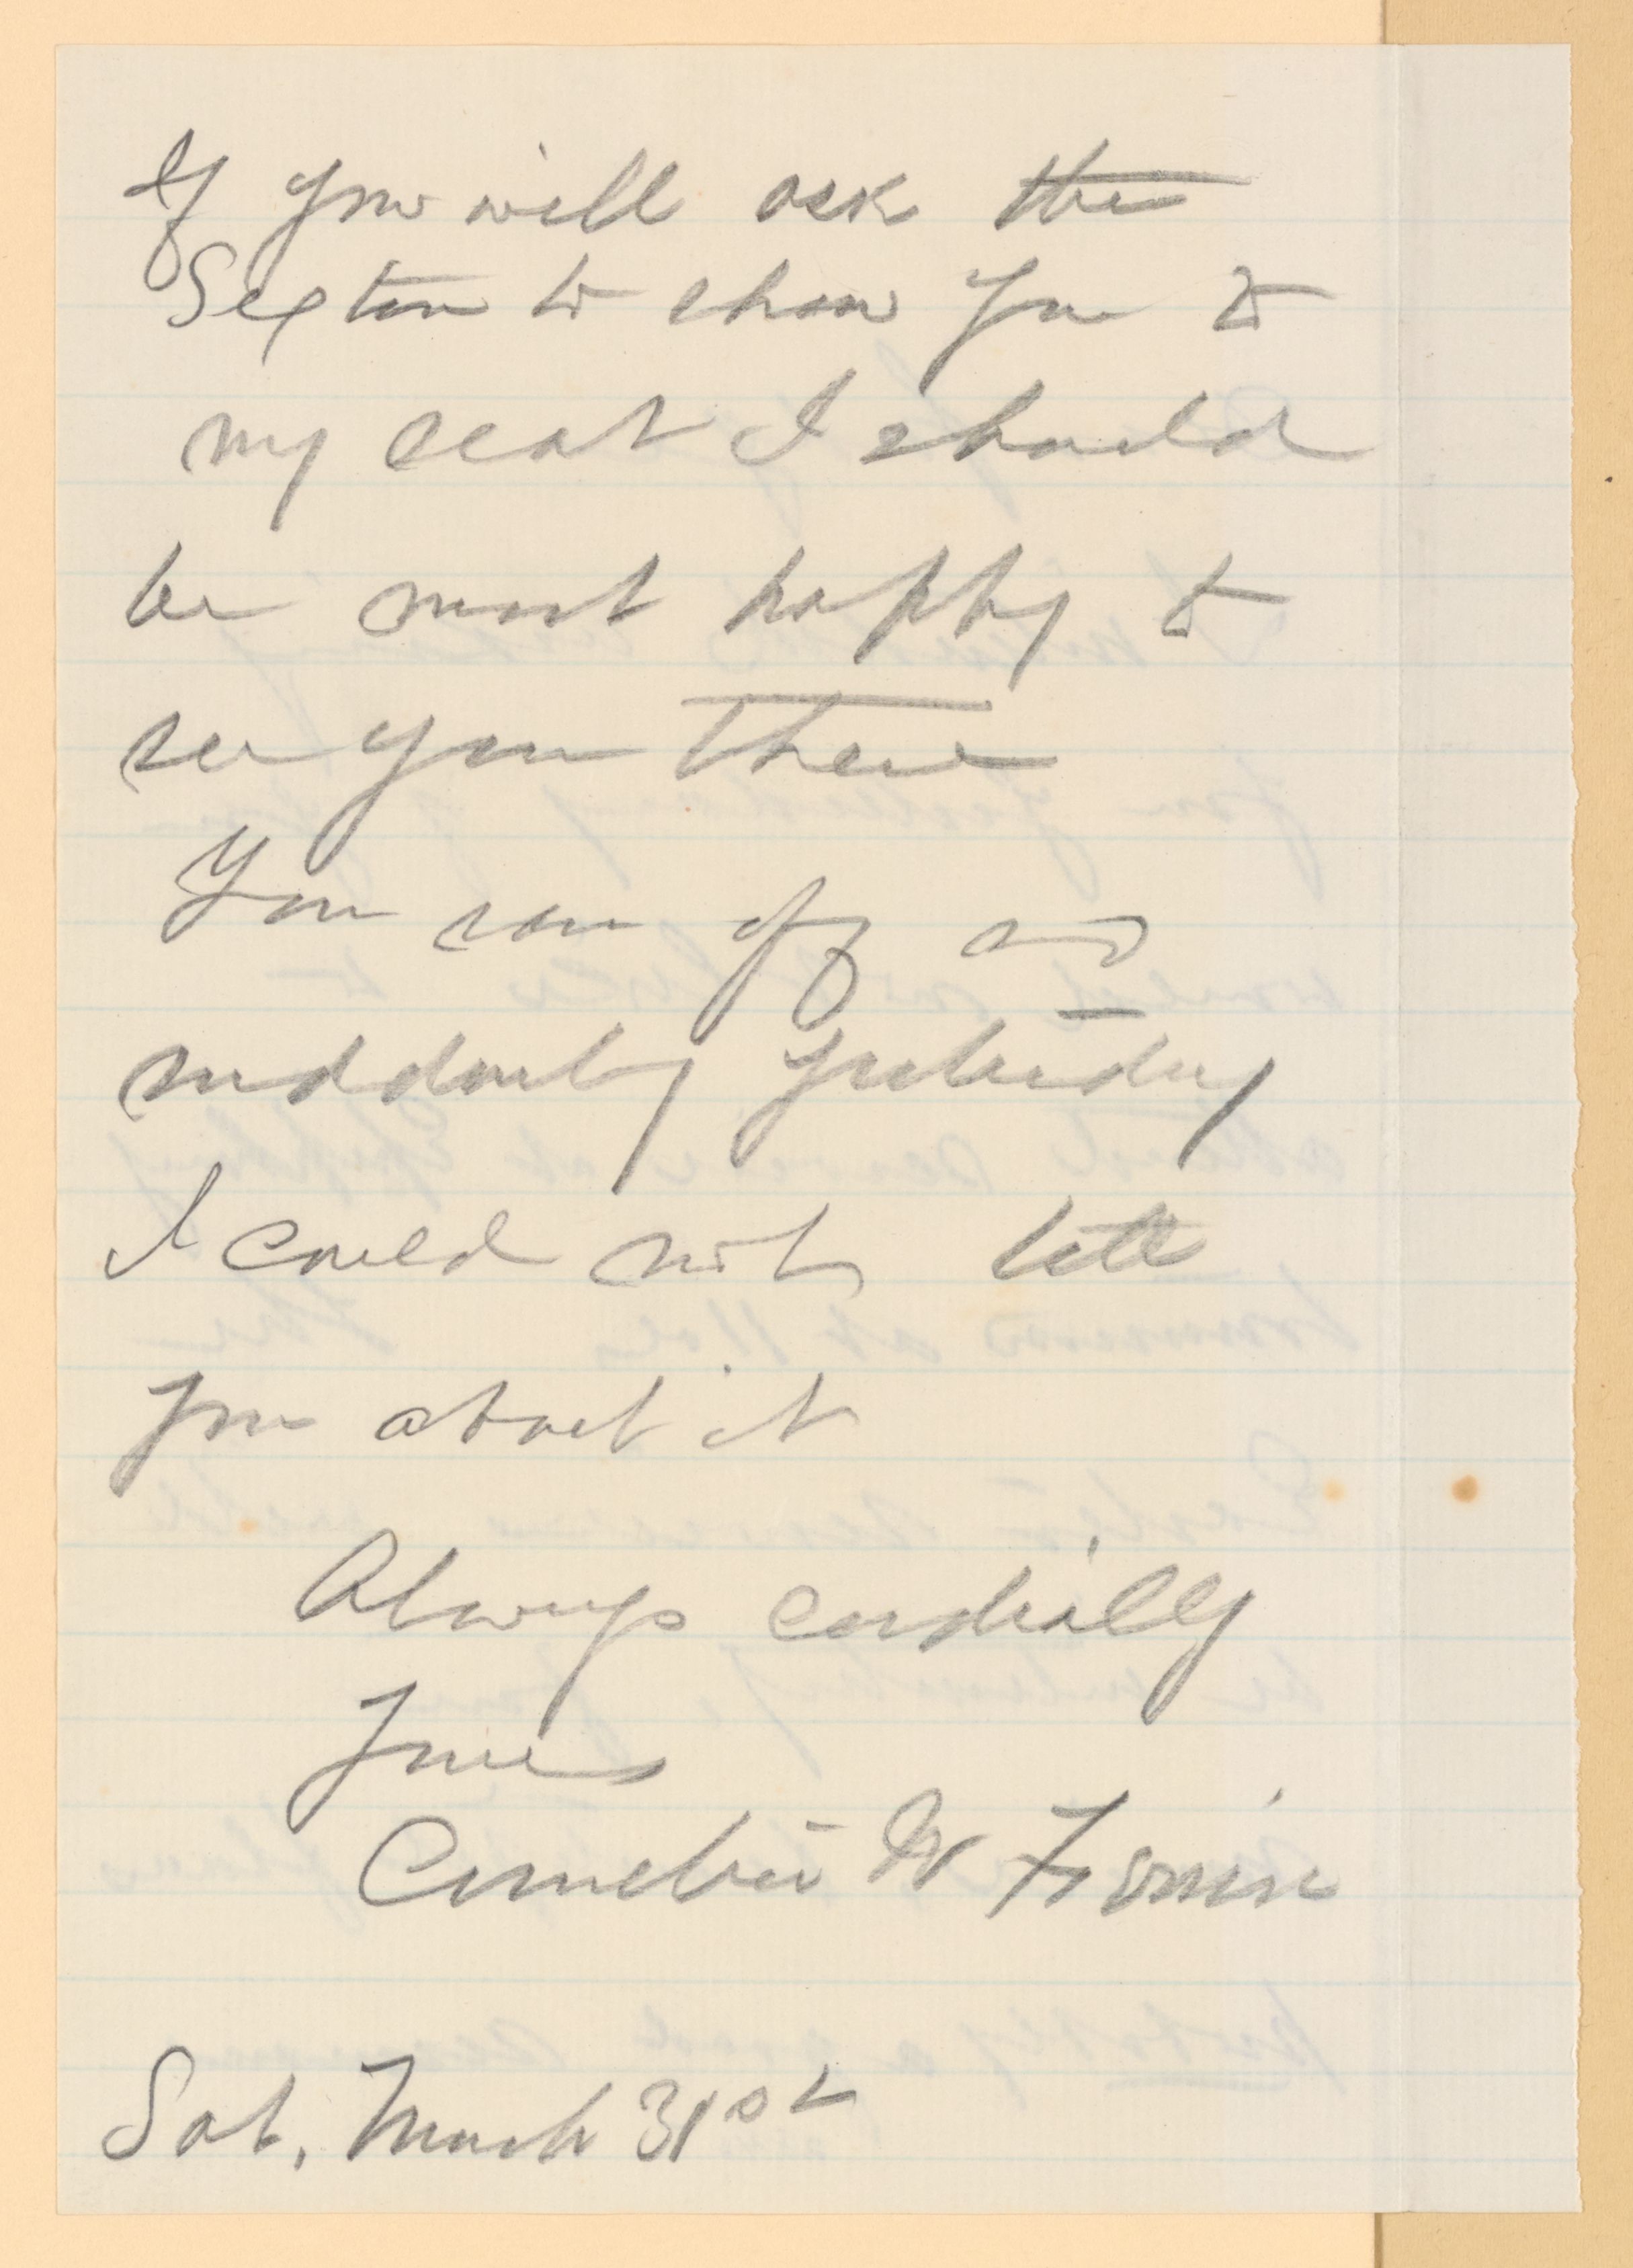 If you will ask the
Sexton to show you to
my seat I should
be most happy to
see you there
You ran off so
suddenly yesterday
I could not tell
you about it
Always cordially
Yours
Cornelia W
Sat. March 31st